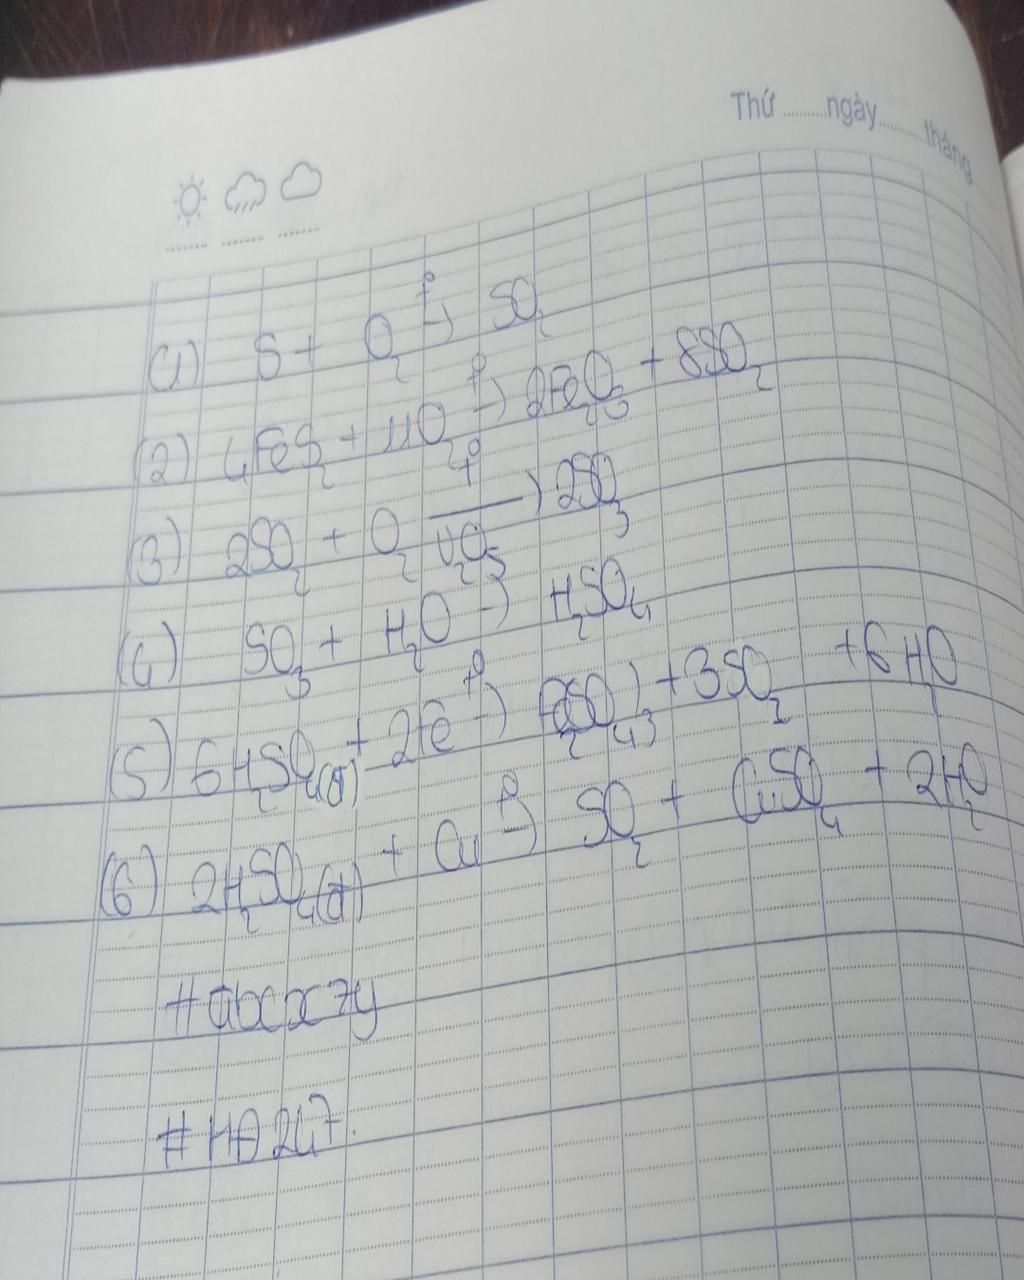 Thứ ........ngày........tháng
(1) S + O₂ t°→ SO₂
(2) 4FeS₂ + 11O₂ t°→ 2Fe₂O₃ + 8SO₂
(3) 2SO₂ + O₂ t°→ V₂O₅ 2SO₃
(4) SO₃ + H₂O → H₂SO₄
(5) 6H₂SO₄(đ) + 2Fe t°→ Fe₂(SO₄)₃ + 3SO₂ + 6H₂O
(6) 2H₂SO₄(đ) + Cu t°→ SO₂ + CuSO₄ + 2H₂O
#abcx7y
#HĐ247.